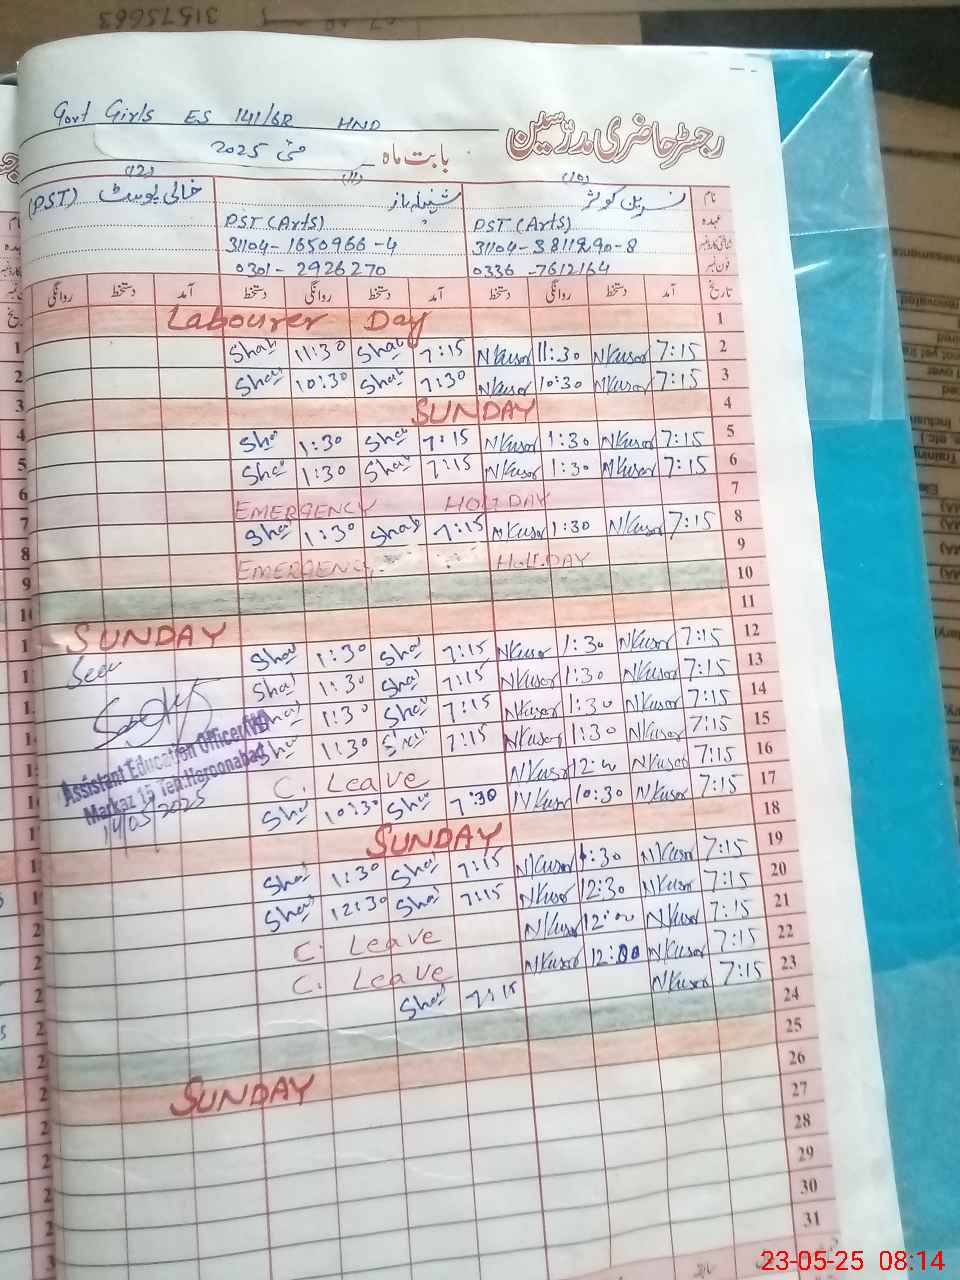 Govt Girls ES 141/6R HND
رجسٹر حاضری مدرسین
بابت ماہ مئی 2025
(10) (11) (12)
نام نسرین کوثر شہناز خالی پوسٹ (PST)
عہدہ PST (Arts) PST (Arts)
شناختی کارڈ نمبر 31104-3811290-8 31104-1650966-4
فون نمبر 0336-7612164 0301-2926270
تاریخ آمد دستخط روانگی دستخط آمد دستخط روانگی دستخط آمد دستخط روانگی
1 Labourer Day
2 7:15 NKusar 11:30 NKusar 7:15 Shah 11:30 Shah
3 7:15 NKusar 10:30 NKusar 7:30 Shah 10:30 Shah
4 SUNDAY
5 7:15 NKusar 1:30 NKusar 7:15 Shah 1:30 Shah
6 7:15 NKusar 1:30 NKusar 7:15 Shah 1:30 Shah
7 EMERGENCY HOLIDAY
8 7:15 NKusar 1:30 NKusar 7:15 Shah 1:30 Shah
9 EMERGENCY HoliDAY
10
11 SUNDAY
12 7:15 NKusar 1:30 NKusar 7:15 Shah 1:30 Shah
13 7:15 NKusar 1:30 NKusar 7:15 Shah 1:30 Shah
14 7:15 NKusar 1:30 NKusar 7:15 Shah 1:30 Shah
15 7:15 NKusar 1:30 NKusar 7:15 Shah 1:30 Shah
16 7:15 NKusar 12:00 NKusar C. Leave
17 7:15 NKusar 10:30 NKusar 7:30 Shah 10:30 Shah
18 SUNDAY
19 7:15 NKusar 1:30 NKusar 7:15 Shah 1:30 Shah
20 7:15 NKusar 12:30 NKusar 7:15 Shah 12:30 Shah
21 7:15 NKusar 12:00 NKusar C. Leave
22 7:15 NKusar 12:00 NKusar C. Leave
23 7:15 NKusar 7:15 Shah
24
25 SUNDAY
26
27
28
29
30
31
Seen
Assistant Education Officer
Markaz 15 Teh:Haroonabad
14/05/2025
31575663
23-05-25 08:14